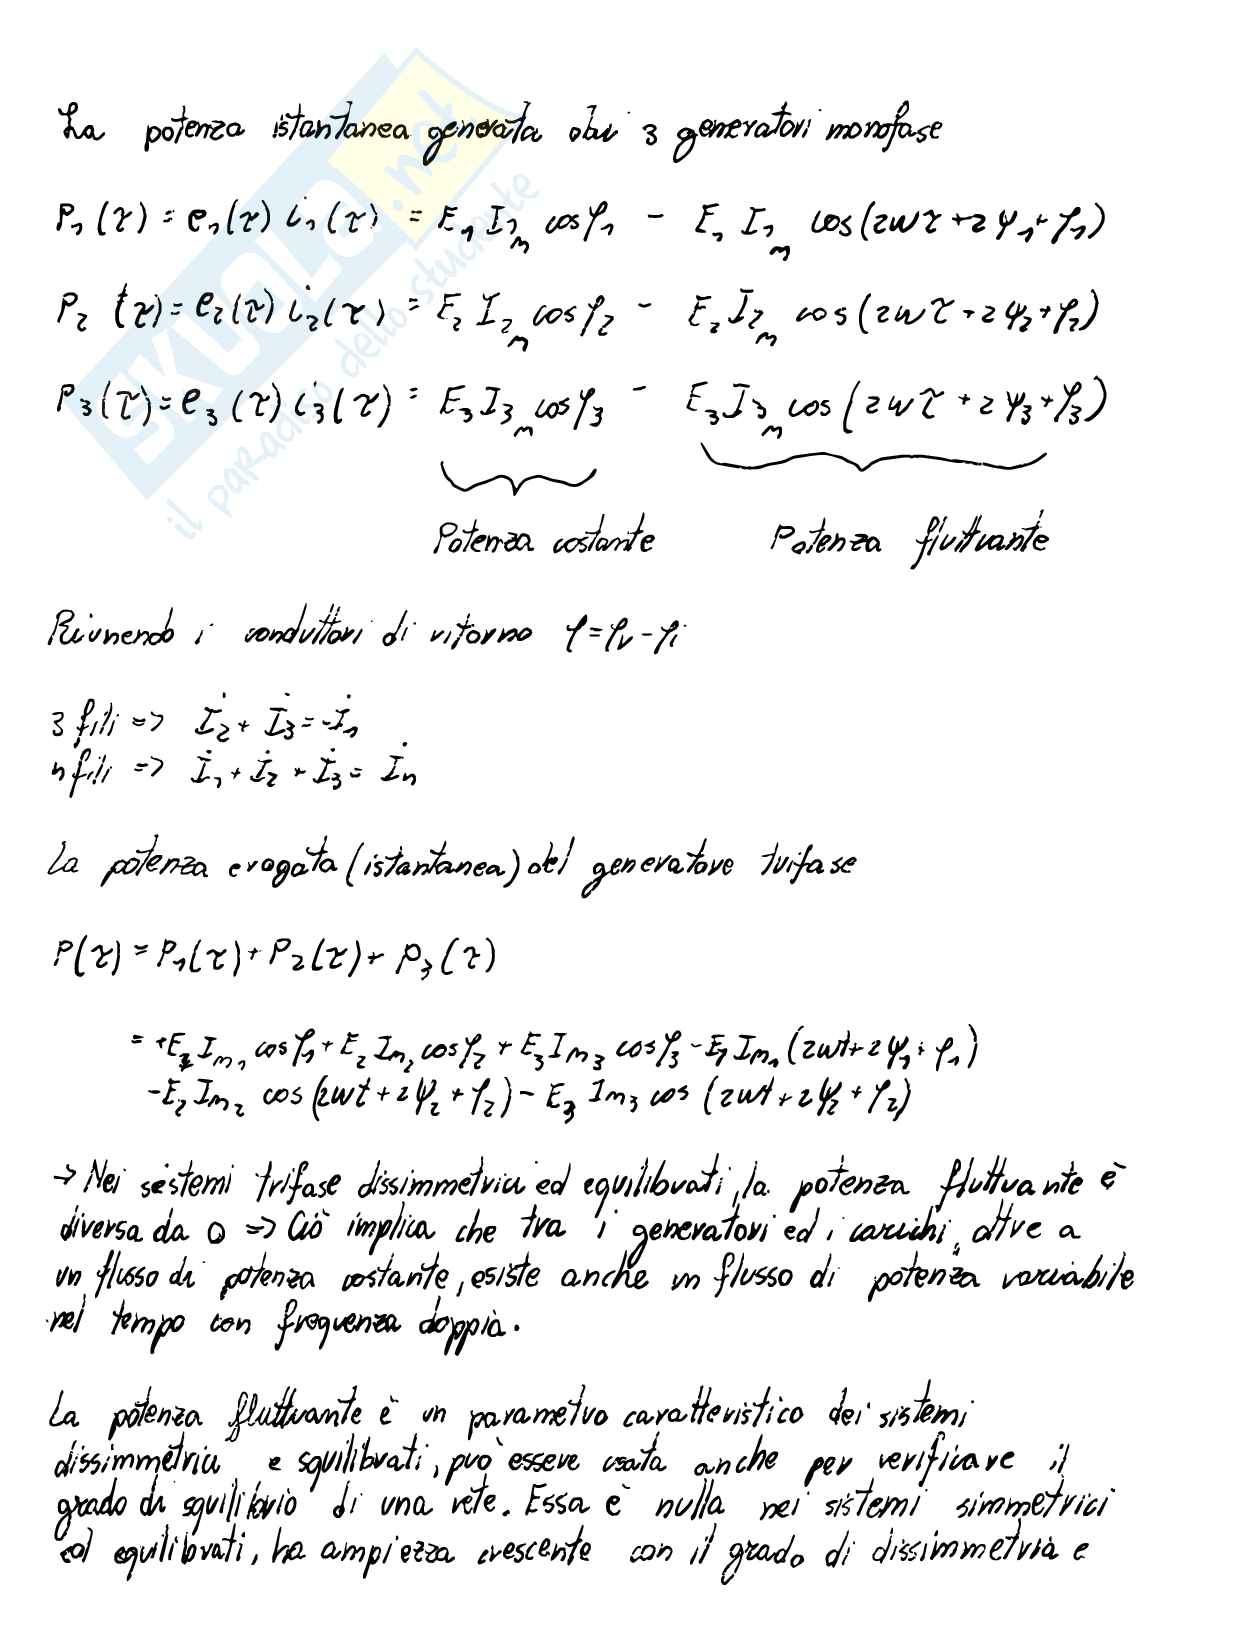 La potenza istantanea generata dai 3 generatori monofase
P₁(τ) = e₁(τ) i₁(τ) = E₁ I₁ₘ cosφ₁ - E₁ I₁ₘ cos(2wτ+2ψ₁+φ₁)
P₂ (τ) = e₂(τ) i₂(τ) = E₂ I₂ₘ cosφ₂ - E₂ I₂ₘ cos(2wτ+2ψ₂+φ₂)
P₃(τ) = e₃(τ) i₃(τ) = E₃ I₃ₘ cosφ₃ - E₃ I₃ₘ cos(2wτ+2ψ₃+φ₃)
Potenza costante Potenza fluttuante
Riunendo i conduttori di ritorno φ=φv-φi
3 fili => İ₂ + İ₃ = -İ₁
n fili => İ₁ + İ₂ + İ₃ = İn
La potenza erogata (istantanea) del generatore trifase
P(τ) = P₁(τ) + P₂(τ) + p₃(τ)
= +E₁ Iₘ₁ cosφ₁ + E₂ Iₘ₂ cosφ₂ + E₃ Iₘ₃ cosφ₃ - E₁ Iₘ₁ (2wt+2ψ₁+φ₁)
-E₂ Iₘ₂ cos(2wt+2ψ₂+φ₂) - E₃ Iₘ₃ cos (2wt+2ψ₂+φ₂)
→ Nei sistemi trifase dissimmetrici ed equilibrati, la potenza fluttuante è
diversa da 0 => Ciò implica che tra i generatori ed i carichi, oltre a
un flusso di potenza costante, esiste anche un flusso di potenza variabile
nel tempo con frequenza doppia.
La potenza fluttuante è un parametro caratteristico dei sistemi
dissimmetrici e squilibrati, può essere usata anche per verificare il
grado di squilibrio di una rete. Essa è nulla nei sistemi simmetrici
ed equilibrati, ha ampiezza crescente con il grado di dissimmetria e
SKUOLA.net
il paradiso dello studente